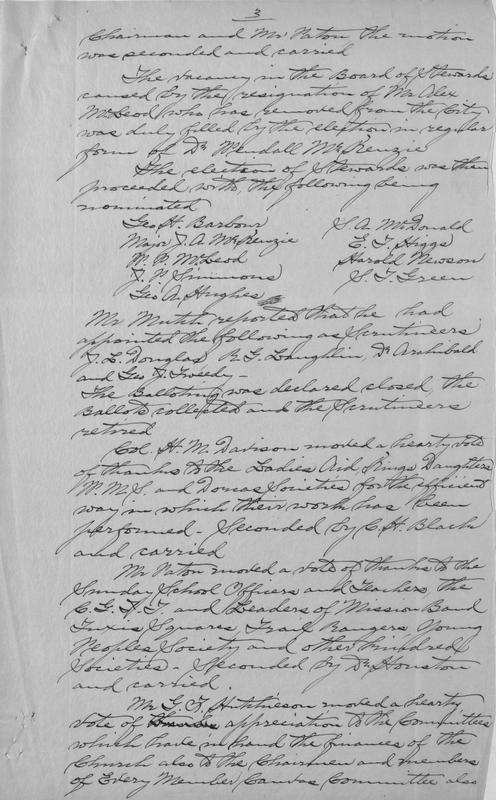 3
Chairman and Mr Paton the motion
was seconded and carried
The vacancy in the Board of Stewards
caused by the resignation of Mr Alex
McLeod who has removed from the City
was duly filled by the election in regular
form of Dr Wendall McKenzie
The election of Stewards was then
proceeded with, the following being
nominated
Geo H. Barbour S. A. McDonald
Major J. A. McKenzie E. T. Higgs
W. R. McLeod Harold Newson
J. P. Simmons S. T. Green
Geo A. Hughes
Mr Mutch reported that he had
appointed the following as Scrutineers
J. L. Douglas R. G. Laughlin, Dr Archibald
and Geo J. Tweedy –
The Balloting was declared closed, the
Ballots collected and the Scrutineers
retired
Col. H. M. Davison moved a hearty vote
of thanks to the Ladies Aid Kings Daughters
W. M. S. and Dorcas Societies for the efficient
way in which their work has been
performed – Seconded by C. H. Black
and carried
Mr Paton moved a vote of thanks to the
Sunday School Officers and Teachers, the
C. G. I. T. and Leaders of Mission Band
Tuxis Squares, Trail Rangers Young
Peoples Society and other kindred
Societies – Seconded by Dr Houston
and carried.
Mr G. F. Hutcheson moved a hearty
vote of appreciation to the Committees
which have in hand the finances of the
Church also to the Chairmen and members
of Every Member Canvas Committee also